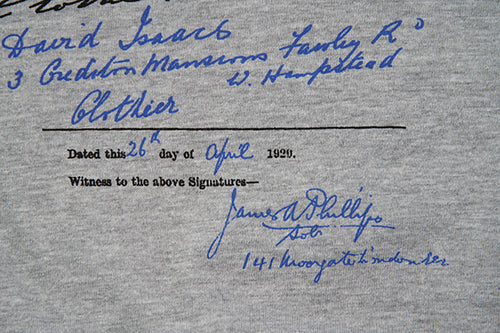 David Isaacs
3 Crediton Mansions Fawley Rd
W. Hampstead
Clothier
Dated this 26th day of April 1920.
Witness to the above Signatures—
James A Phillips
Solr
141 Moorgate London EC